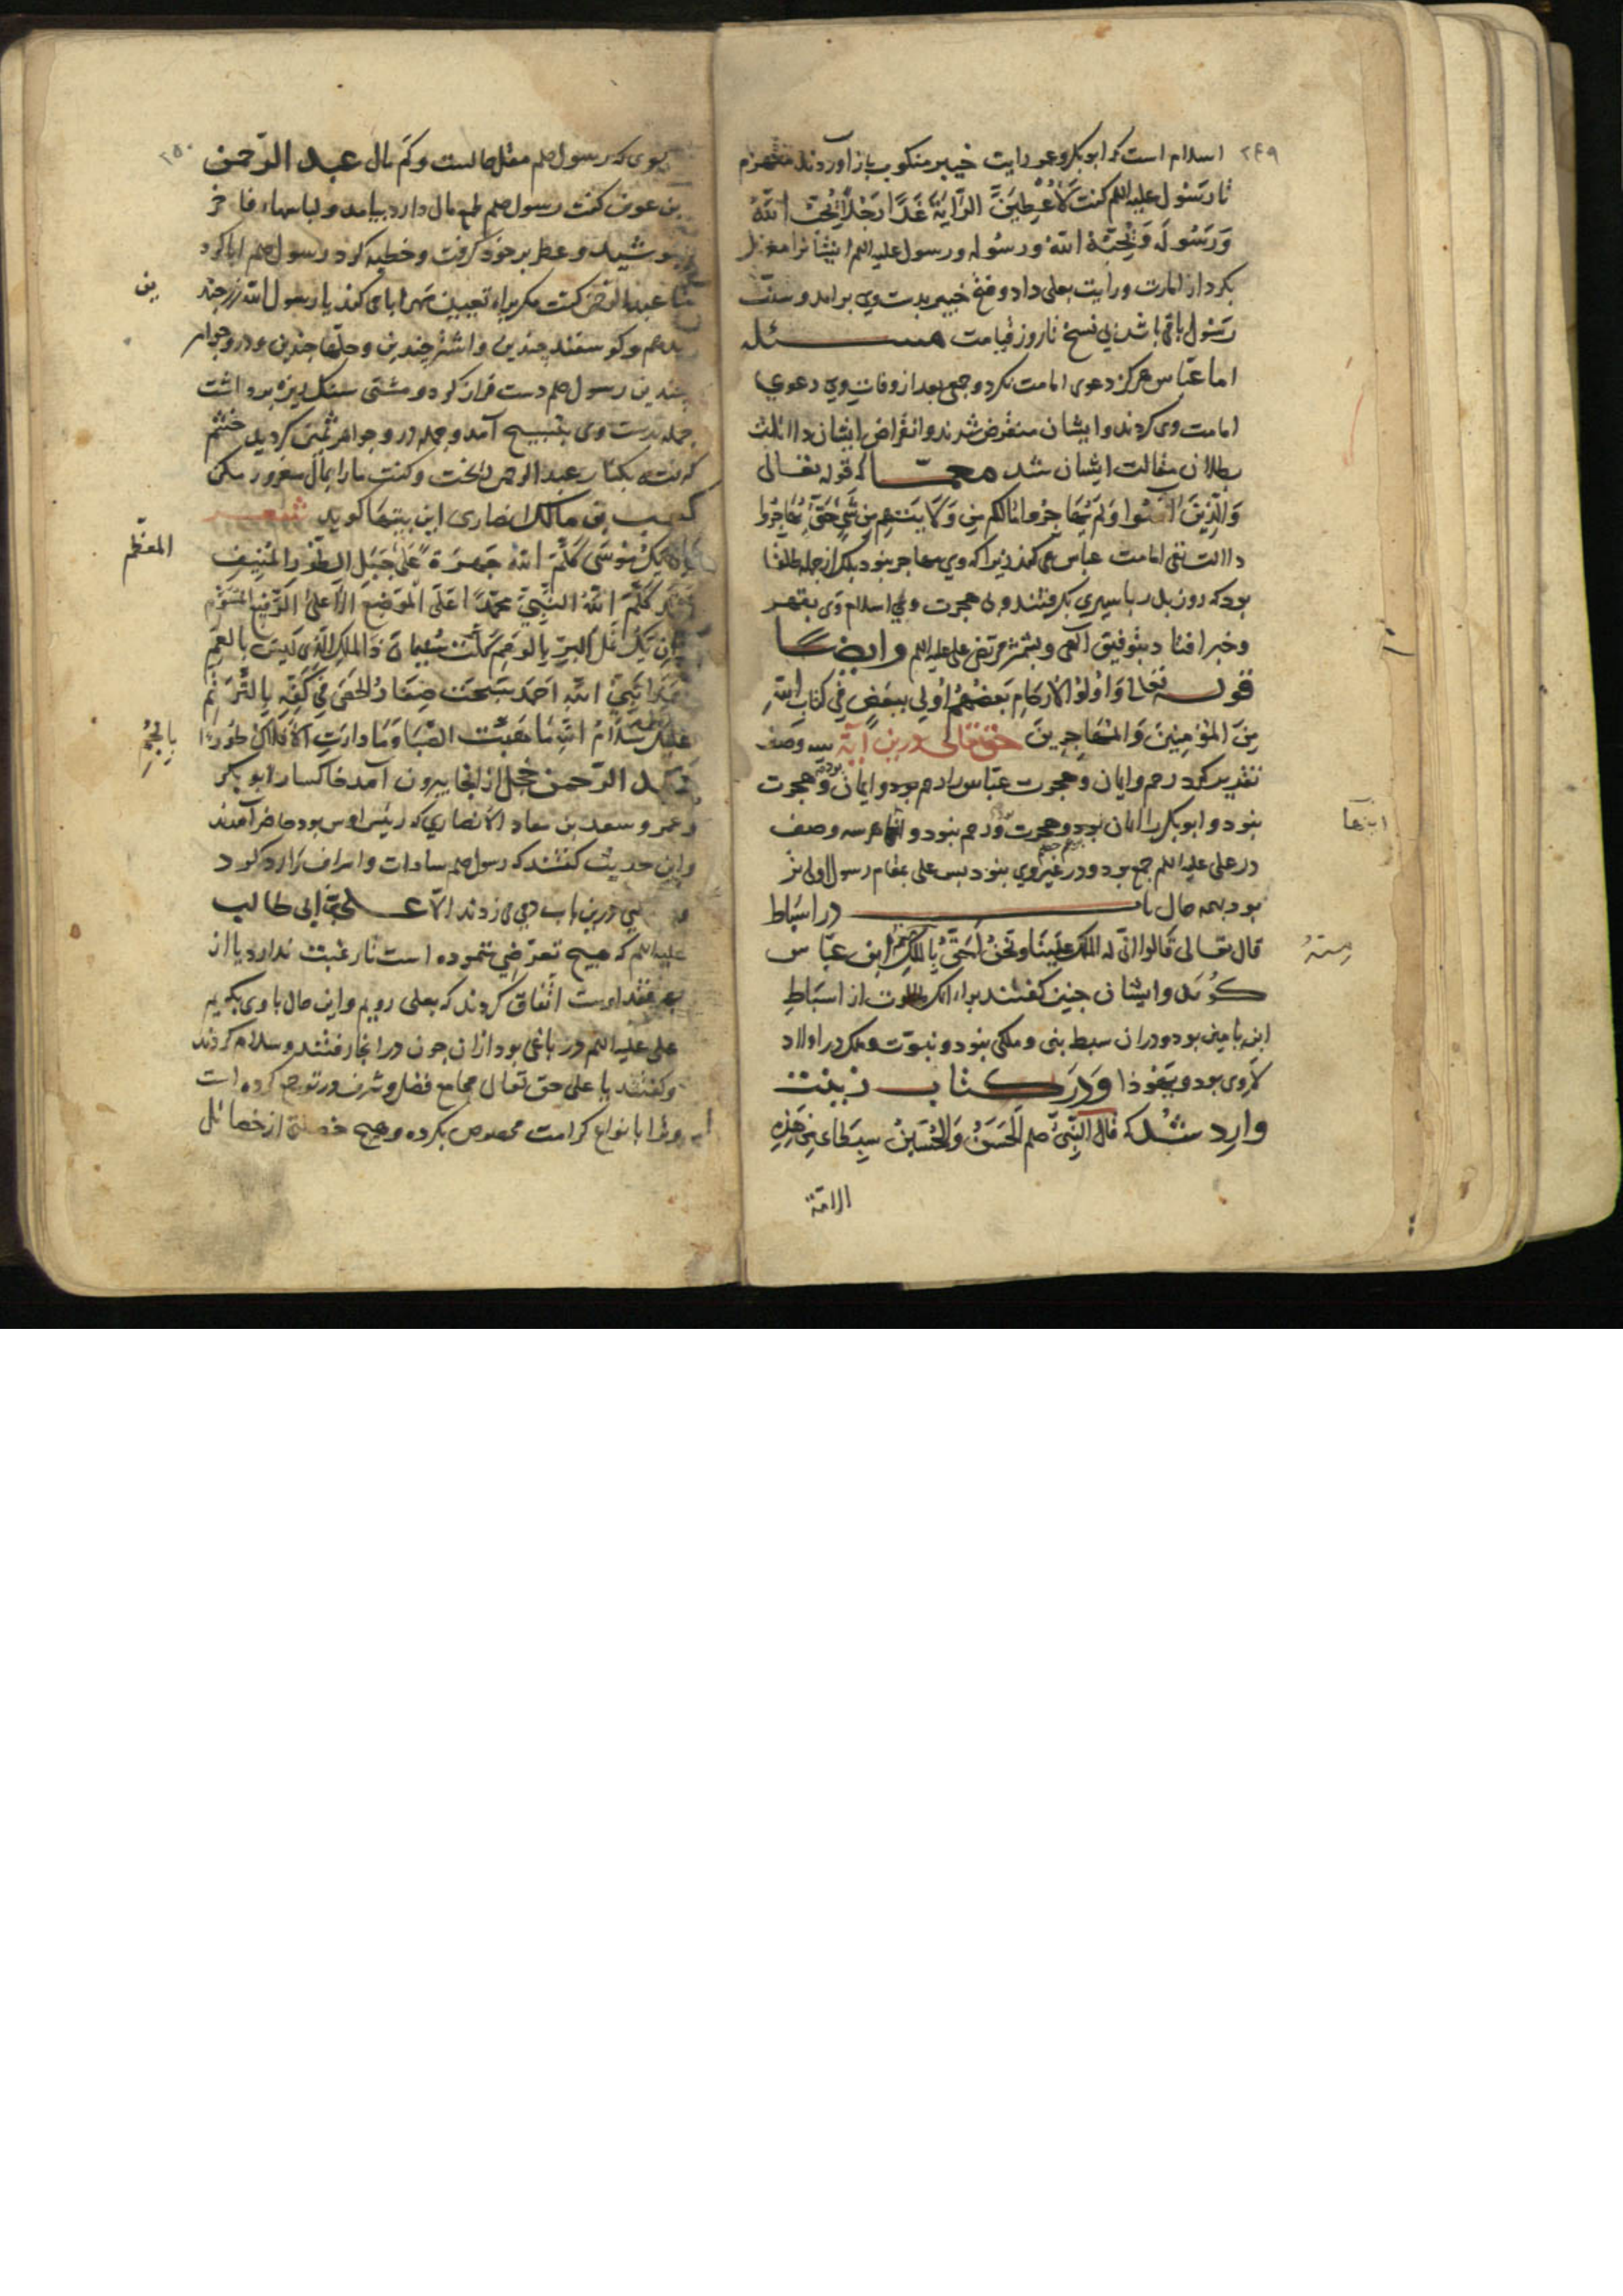 ۲۴۹
اسلام است که ابوبکر و عمر رایت خیبر منکوب باز آوردند منهزم
تا رسول علیه السلم کفت لَاُعْطِیَنَّ الرَّایَةَ غَدًا رَجُلًا یُحِبُّ اللّهَ
وَرَسُولَه وَیُحِبُّهُ اللّهُ ورسُوله ورسول علیه السلم ایشانرا معزول
بکرد از امارت ورایت بعلی داد وفتح خیبر بدست وی برآمد وسنت
رسول باقی باشد بی نسخ تا روز قیامت مسئله
اما عبّاس هرکز دعوی امامت نکرد وجمعی بعد از وفات وی دعوی
امامت وی کردند وایشان منقرض شدند وانقراض ایشان دلالت
بطلان مقالت ایشان شد قوله تعالی
وَالَّذِینَ آمَنُوا وَلَم یُهَاجِرُوا مَالَکُم مِن وَلَایَتِهِم مِن شَیءٍ حَتّی یُهَاجِرُوا
دلالت نفی امامت عباس می کند زیرا که وی مهاجر نبود بلکه از جمله طلقا
بود که روز بدر باسیری بکرفتند و بی هجرت وبی اسلام وی بقهر
وخبر افتاد بتوفیق الهی وبشمشیر مرتضی علی علیه السلم وایضًا
قوله تعالی وَاُولُوا الاَرحَامِ بَعضُهُم اَولی بِبَعضٍ فِی کِتَابِ اللّهِ
مِنَ المُؤمِنِینَ وَالمُهَاجِرِینَ حق تعالی درین آیة سه وصف
تقدیر کرد رحم وایمان وهجرت عبّاس را رحم بود وایمان بود وهجرت
نبود وابوبکر را ایمان بود وهجرت بود ورحم نبود وانها هر سه وصف
اینها
در علی علیه السلم جمع بود ودر غیر وی نبود بس علی بمقام رسول اولی تر
بود بهمه حال باب در اسباط
قال تعالی قَالُوا اَنّی له المُلکُ عَلَینَا وَنَحنُ اَحَقُّ بِالمُلکِ مِنهُ ابن عبّاس
منهُ
کوید وایشان جنین کفتند برای انک طالوت از اسباط
ابن یامین بود ودران سبط نبی وملکی نبود ونبوّت وملک در اولاد
لاوی بود ویهوذا ودر کتاب زینت
وارد شد که قال النَّبِیُّ صلم اَلحَسَنُ وَالحُسَینُ سِبطَا هذِهِ
الامّة
۲۵۰
که رسول صلم مقل حالست وکم مال عبد الرّحمن
بن عوف کفت رسول صلم طمع مال دارد بیامد ولباسهاء فاخر
بوشید وعطر بر خود کرفت وخطبه کرد رسول صلم ابا کرد
عبد الرحمن کفت مکر براه تعیین مهر ابا می کند یا رسول الله زر جندین
بدهم وکوسفند جندین واشتر جندین وحلّها جندین ودر وجواهر
جندین رسول صلم دست فراز کرد ومشتی سنک ریزه برداشت
جمله بدست وی بتسبیح آمد وجمله در وجواهر ثمین کردید خشم
کرفته بکنار عبد الرحمن ریخت وکفت ما را بمال مغرور مکن
کعب بن مالک انصاری این بیتها کوید شعر
یَکُ مُوسی کَلَّمَ اللّهُ جَهرَةً عَلی جَبَلِ الطُّور المُنِیف
المعظّم
کَلَّمَ اللّهُ النَّبِیَّ محمّدًا عَلَی المَوضِعِ الاَعلَی الرَّفیع المُسَوَّم
وَاِن یَکُ نَملُ البَرِّ بِالوَهمِ کَلَّمَت سُلَیمَانَ ذَا المُلکِ الَّذِی لَیسَ بِالعَمِی
نَبِیُّ اللّهِ اَحمَدُ سَبَّحَت صِغَارُ الحَصَی فِی کَفِّهِ بِالتَّرَنُّم
عَلَیکَ سَلَامُ اللّهِ مَا هَبَّت الصَّبَا وَمَا دَارَتِ الاَفلَاکُ طُورًا
بِاَنجُمِ
عبد الرّحمن خجل از انجا بیرون آمد خاکسار ابوبکر
وعمر وسعد بن معاذ الانصاری که رئیس اوس بود حاضر آمدند
واین حدیث کفتند که رسول صلم سادات واشراف را رد کرد
درین باب دمی نزدند الّا علی بن ابی طالب
علیه السلم که هیچ تعرّضی ننموده است تا رغبت ندارد یا از
اوست اتّفاق کردند که بعلی رویم واین حال با وی بکوییم
علی علیه السلم در باغی بود ازان جون در انجا رفتند وسلام کردند
وکفتند یا علی حق تعالی مجامع فضل وشرف در تو جمع کرده است
وترا بانواع کرامت مخصوص بکرده وهیچ خصلتی از خصائل